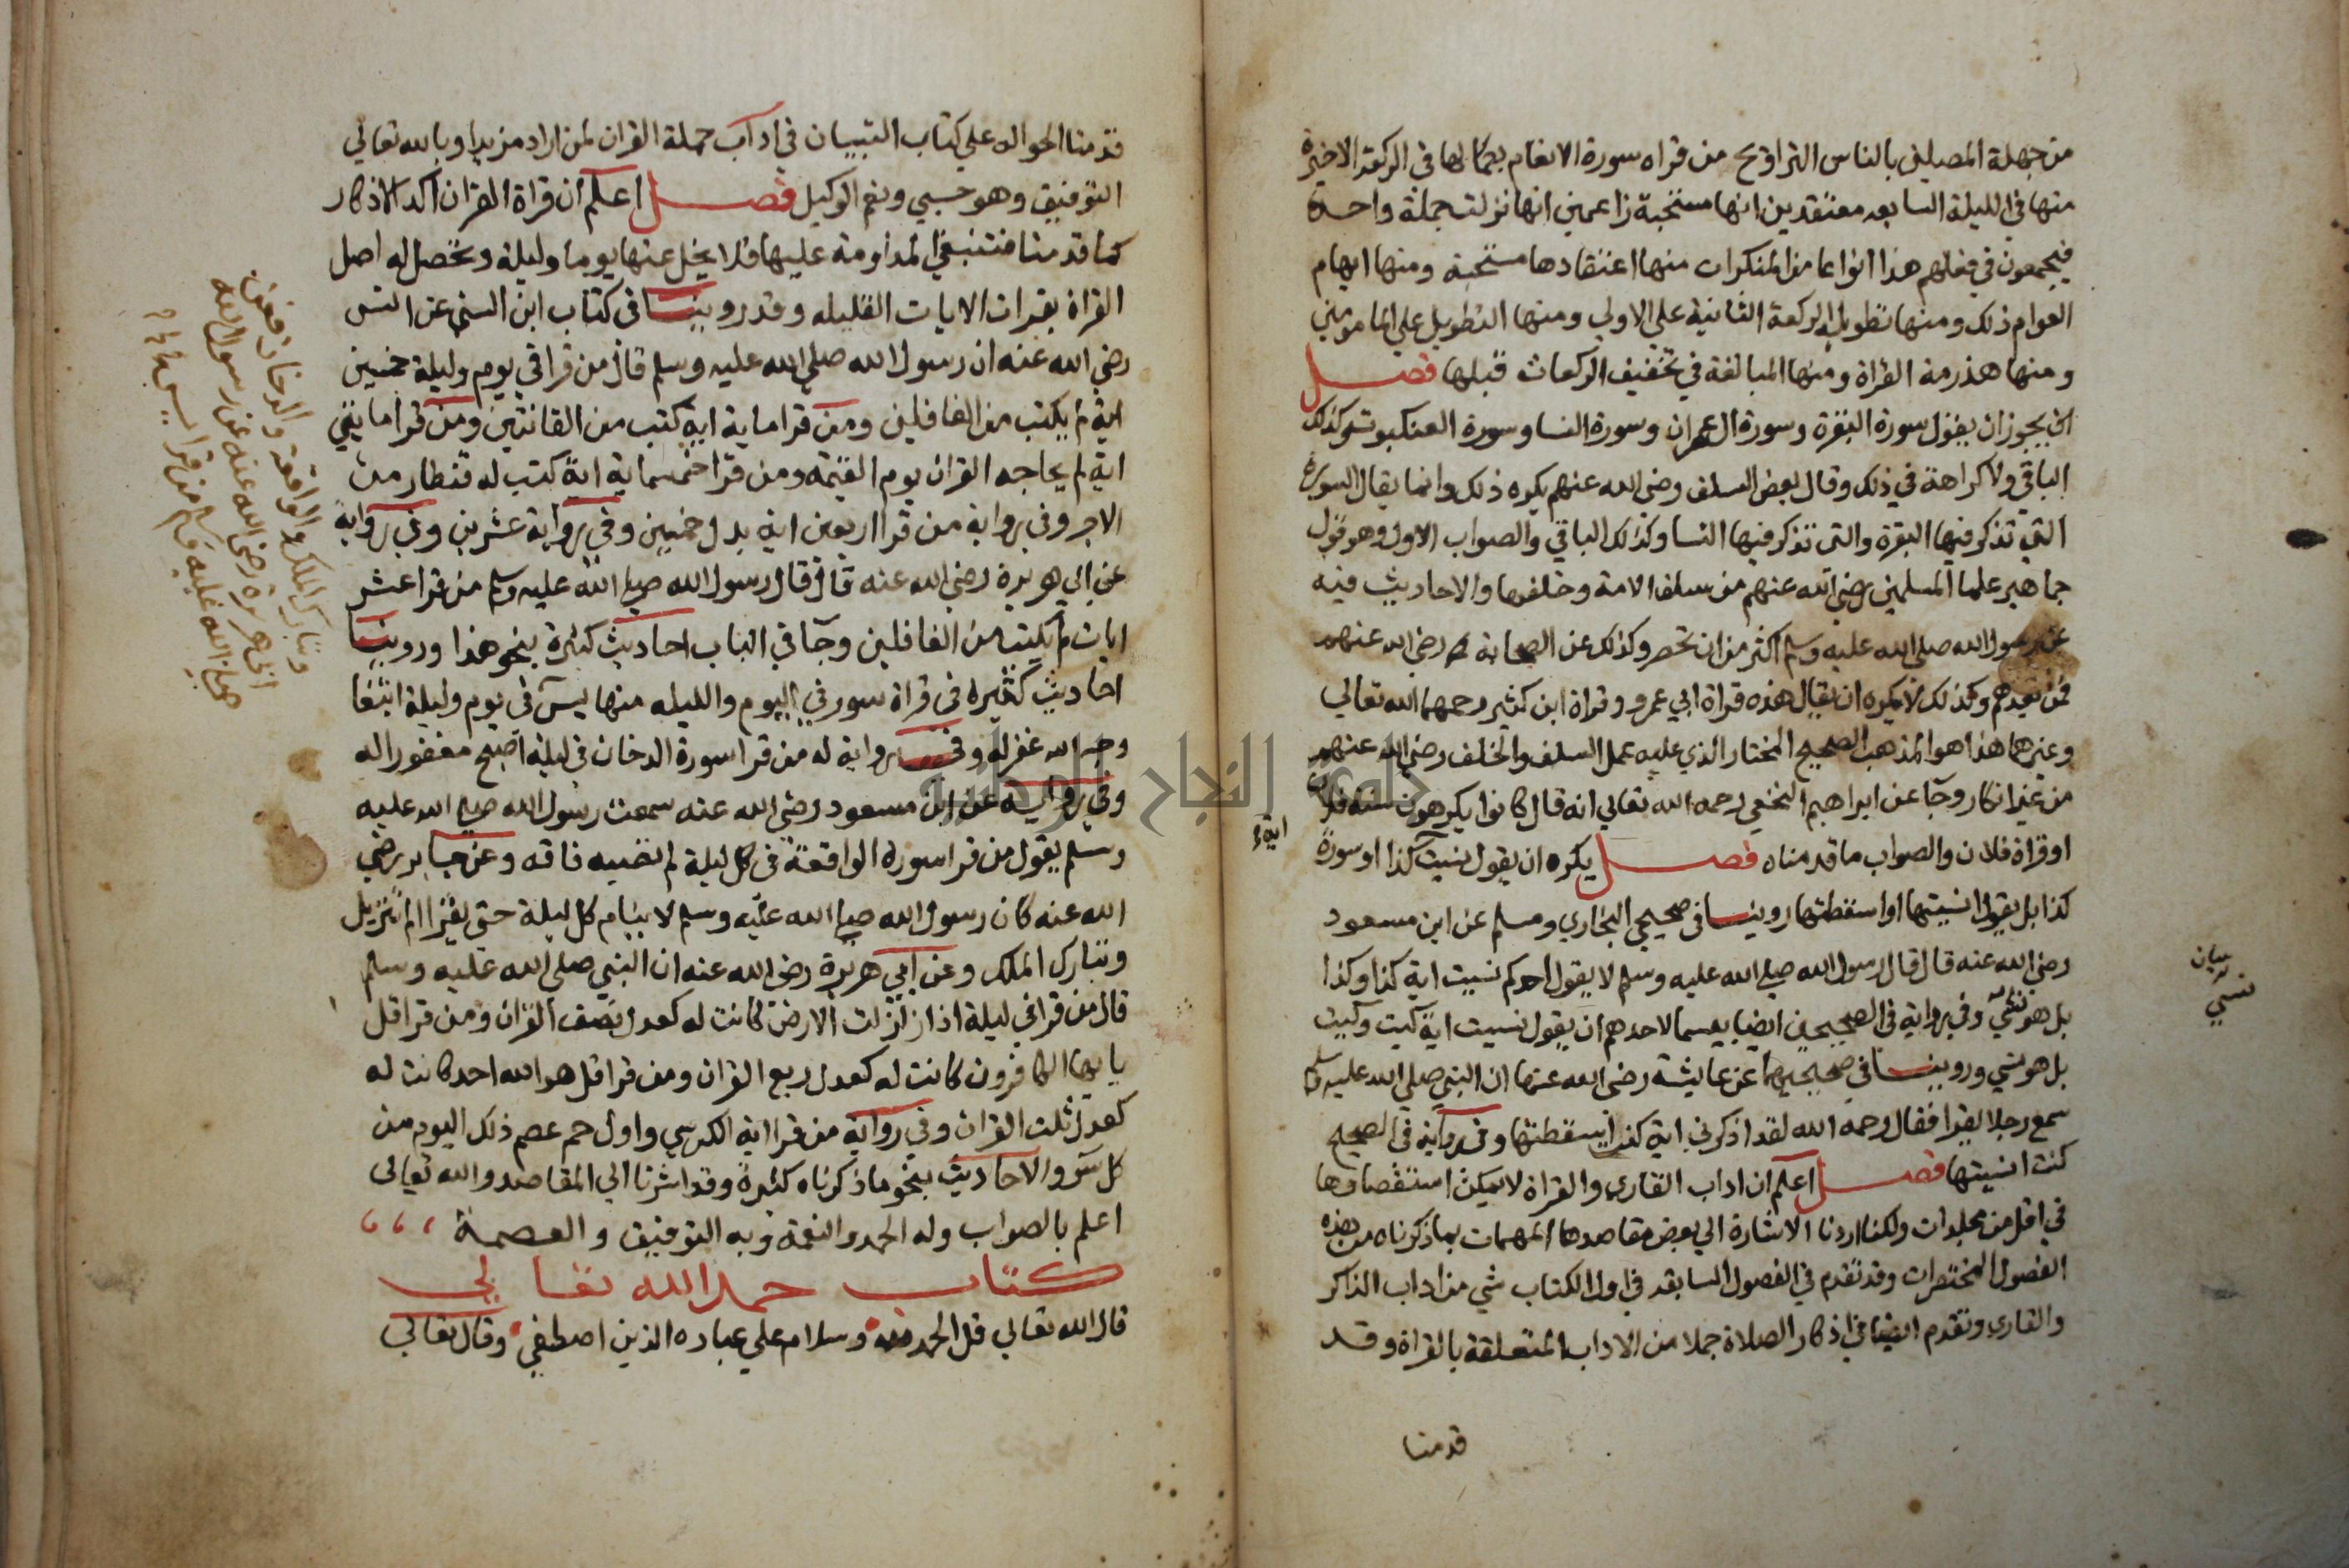 من جهلة المصلين بالناس التراويح من قراه سورة الانعام بكمالها في الركعة الاخيرة
منها في الليلة السابعه معتقدين انها مستحبة زاعمين انها نزلت جملة واحدة
فيجمعون في فعلهم هذا انواعا من المنكرات منها اعتقادها مستحبة ومنها ايهام
العوام ذلك ومنها تطويل الركعة الثانية على الاولي ومنها التطويل على المامومين
ومنها هذرمة القراة ومنها المبالغة في تخفيف الركعات قبلها فصل
يجوز ان يقول سورة البقرة وسورة ال عمران وسورة النسا وسورة العنكبوت وكذلك
الباقي ولا كراهة في ذلك وقال بعض السلف رضي الله عنهم يكره ذلك وانما يقال السورة
التي تذكر فيها البقرة والتي تذكر فيها النسا وكذلك الباقي والصواب الاول وهو قول
جماهير علما المسلمين رضي الله عنهم من سلف الامة وخلفها والاحاديث فيه
عن رسول الله صلى الله عليه وسلم اكثر من ان تحصر وكذلك عن الصحابة رضي الله عنهم
فمن بعدهم وكذلك لا يكره ان يقال هذه قراة ابي عمرو وقراة ابن كثير رحمهما الله تعالي
وغيرهما هذا هو المذهب الصحيح المختار الذي عليه عمل السلف والخلف رضي الله عنهم
من غير انكار وجآ عن ابراهيم النخعي رحمه الله تعالي انه قال كانوا يكرهون سنة فلان
او قراة فلان والصواب ما قدمناه فصل يكره ان يقول نسيت كذا او سورة
اية
كذا بل يقول انسيتها او اسقطتها روينا في صحيحي البخاري ومسلم عن ابن مسعود
رضي الله عنه قال قال رسول الله صلي الله عليه وسلم لا يقول احدكم نسيت اية كذا وكذا
بيان
نسي
بل هو نسّي وفي رواية في الصحيحين ايضا بيسما لاحدهم ان يقول نسيت اية كيت وكيت
بل هو نسي وروينا في صحيحيهما عن عايشة رضي الله عنها ان النبي صلي الله عليه وسلم
سمع رجلا يقرا فقال رحمه الله لقد اذكرني اية كنت اسقطتها وفي رواية في الصحيح
كنت انسيتها فصل اعلم ان اداب القاري والقراة لا يمكن استقصاوها
في اقل من مجلدات ولكنا اردنا الاشارة الي بعض مقاصدها المهمات بما ذكرناه من هذه
الفصول المختصرات وقد تقدم في الفصول السابقه في اول الكتاب شي من اداب الذاكر
والقاري وتقدم ايضا في اذكار الصلاة جملا من الاداب المتعلقة بالقراة وقد
قدمنا
قدمنا الحواله علي كتاب التبيان في اداب حملة القران لمن اراد مزيدا وبالله تعالي
التوفيق وهو حسبي ونعم الوكيل فصل اعلم ان قراة القران اكد الاذكار
كما قدمنا فتنبغي المداومة عليها فلا يخل عنها يوما وليلة وتحصل له اصل
القراة بقرات الايات القليله وقد روينا في كتاب ابن السني عن انس
رضي الله عنه ان رسول الله صلي الله عليه وسلم قال من قرا في يوم وليلة خمسين
اية لم يكتب من الغافلين ومن قرا ماية اية كتب من القانتين ومن قرا مايتي
اية لم يحاجه القران يوم القيمة ومن قرا خمسماية اية كتب له قنطار من
الاجر وفي رواية من قرا اربعين اية بدل خمسين وفي رواية عشرين وفي رواية
عن ابي هريرة رضي الله عنه قال قال رسول الله صلي الله عليه وسلم من قرا عشر
ايات لم يكتب من الغافلين وجآ في الباب احاديث كثيرة بنحو هذا وروينا
احاديث كثيره في قراة سور في اليوم والليله منها يس في يوم وليلة ابتغا
وجه الله غفر له وفي رواية له من قرا سورة الدخان في ليلة اصبح مغفورا له
وفي رواية عن ابن مسعود رضي الله عنه سمعت رسول الله صلي الله عليه
وسلم يقول من قرا سورة الواقعة في كل ليلة لم تصبه فاقه وعن جابر رضي
الله عنه كان رسول الله صلي الله عليه وسلم لا ينام كل ليلة حتي يقرا الم تنزيل
وتبارك الملك وعن ابي هريرة رضي الله عنه ان النبي صلي الله عليه وسلم
قال من قرا في ليلة اذا زلزلت الارض كانت له كعدل نصف القران ومن قرا قل
يا ايها الكافرون كانت له كعدل ربع القران ومن قرا قل هو الله احد كانت له
كعدل ثلث القران وفي رواية من قرا اية الكرسي واول حم عصم ذلك اليوم من
كل سوء والاحاديث بنحو ما ذكرناه كثيرة وقد اشرنا الي المقاصد والله تعالي
اعلم بالصواب وله الحمد والنعمة وبه التوفيق والعصمة
كتاب حمد الله تعالي
قال الله تعالي قل الحمد لله وسلام علي عباده الذين اصطفي وقال تعالي
وتبارك الملك والواقعة والدخان فعن
ابي هريرة رضي الله عنه عن رسول الله
صلي الله عليه وسلم من قرا يس